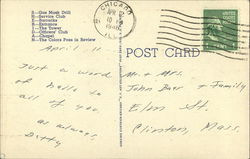 B—Gas Mask Drill
E—Service Club
R—Barracks
K—Entrance
L—The Tower
D—Officers' Club
A—Chapel
Y—The Colors Pass in Review
CHICAGO
ILL.
POST CARD
April 11
Just a word
of hello to
all of you
as always
Dotty
Mr. + Mrs.
John Barr + Family
Elm St.
Clinton, Mass.